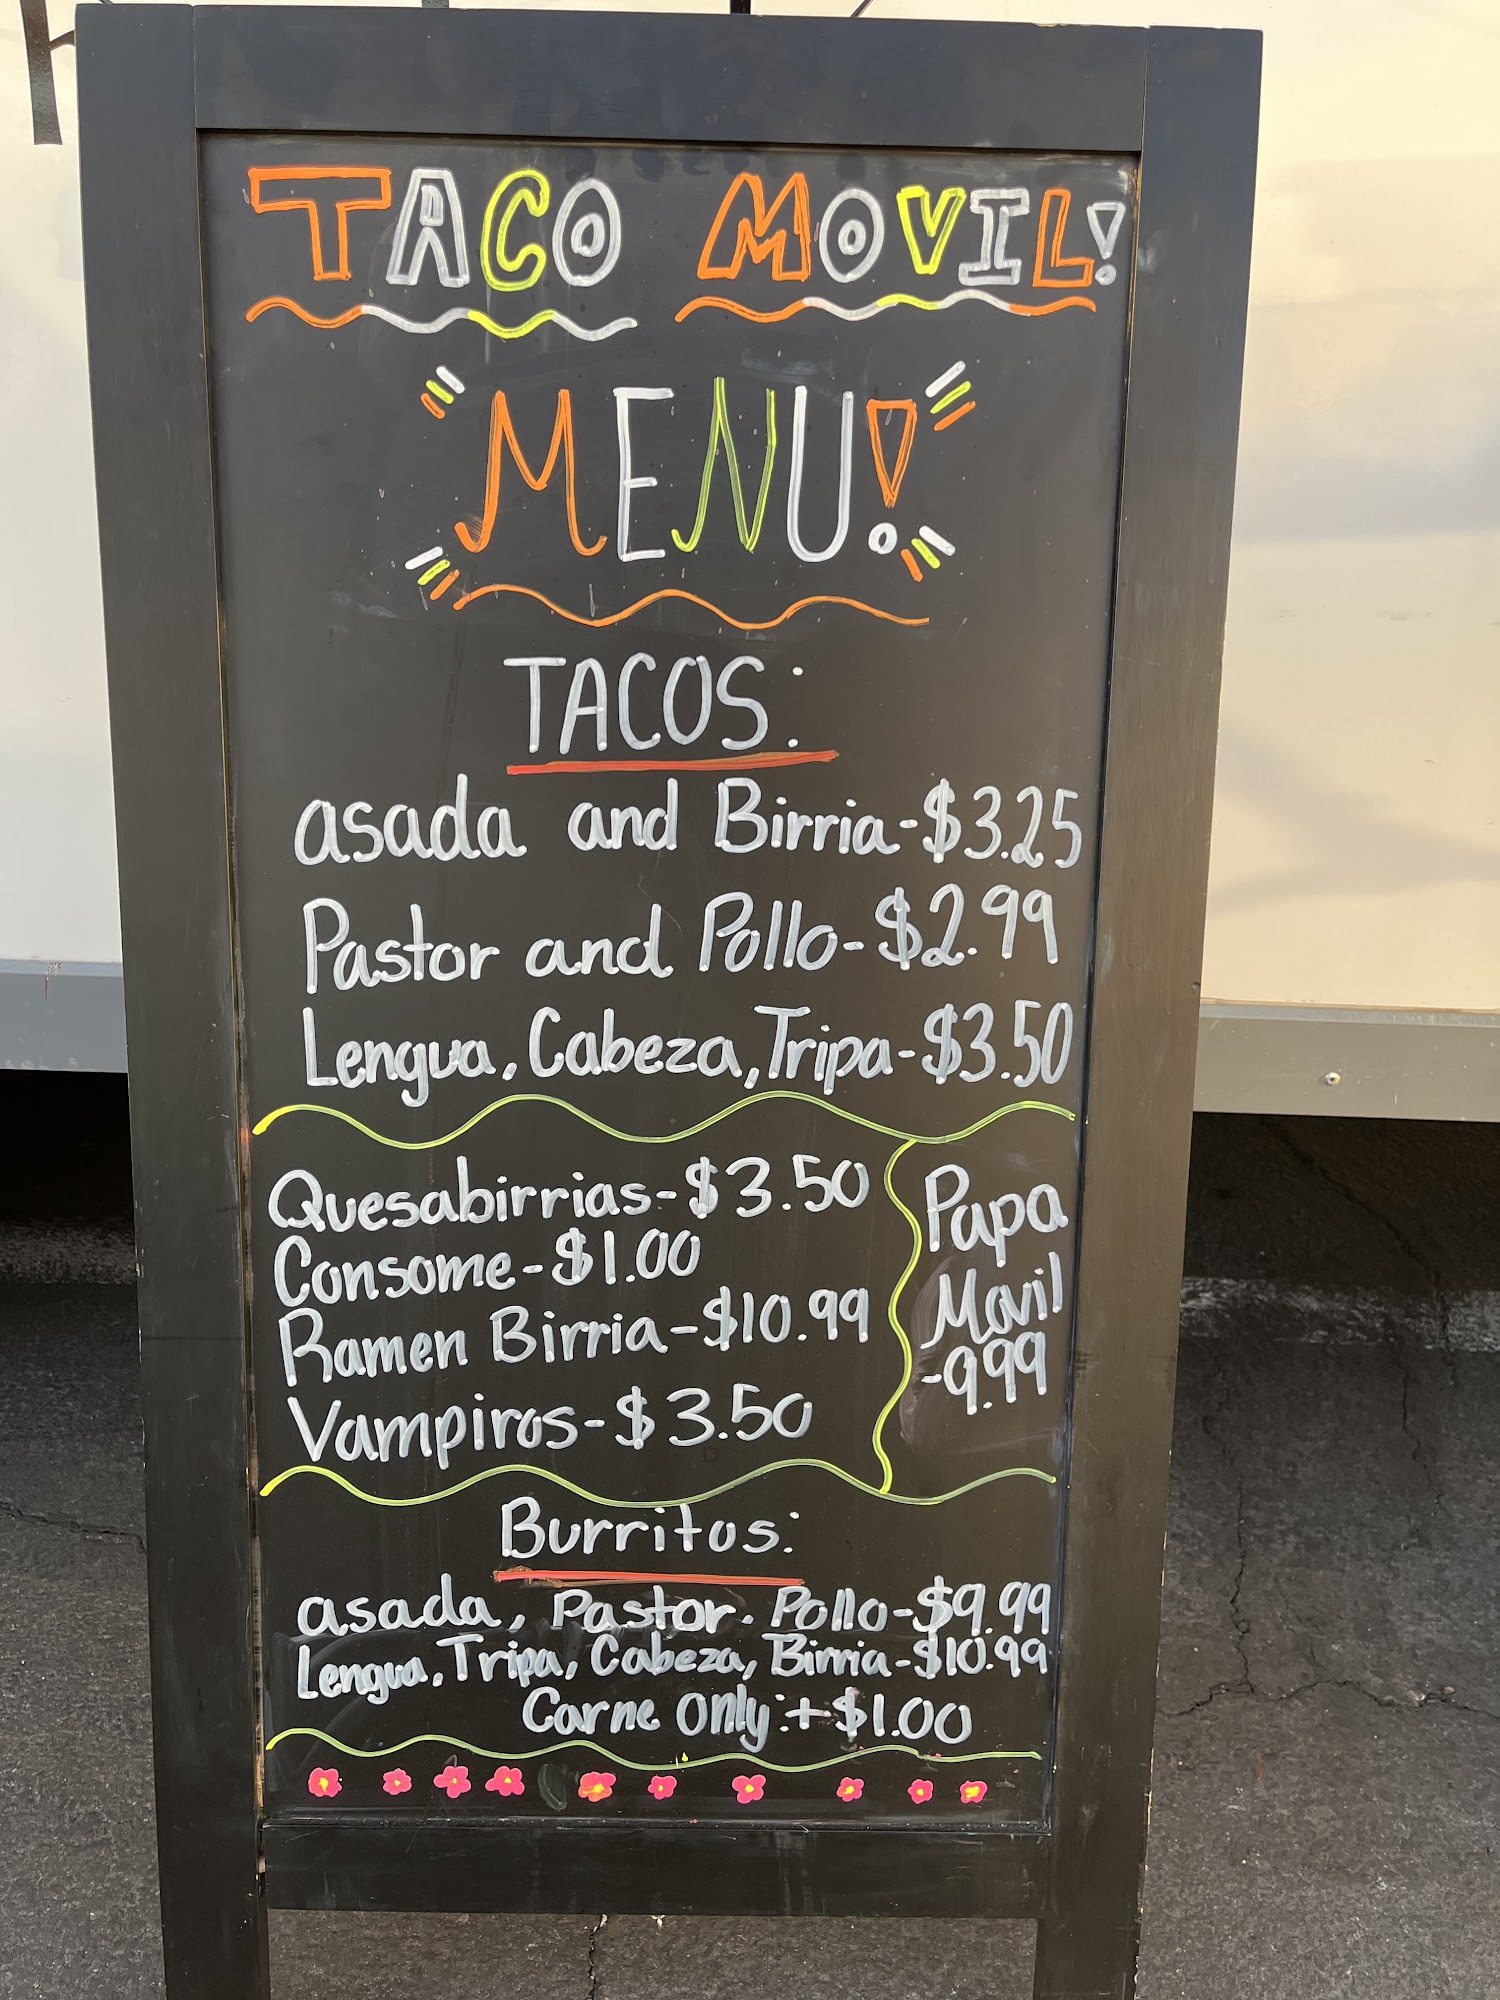 TACO MOVIL!
MENU!
TACOS:
asada and Birria-$3.25
Pastor and Pollo-$2.99
Lengua, Cabeza, Tripa-$3.50
Quesabirrias-$3.50
Consome-$1.00
Ramen Birria-$10.99
Vampiros-$3.50
Papa
Movil
-9.99
Burritos:
asada, Pastor. Pollo-$9.99
Lengua, Tripa, Cabeza, Birria-$10.99
Carne only:+$1.00